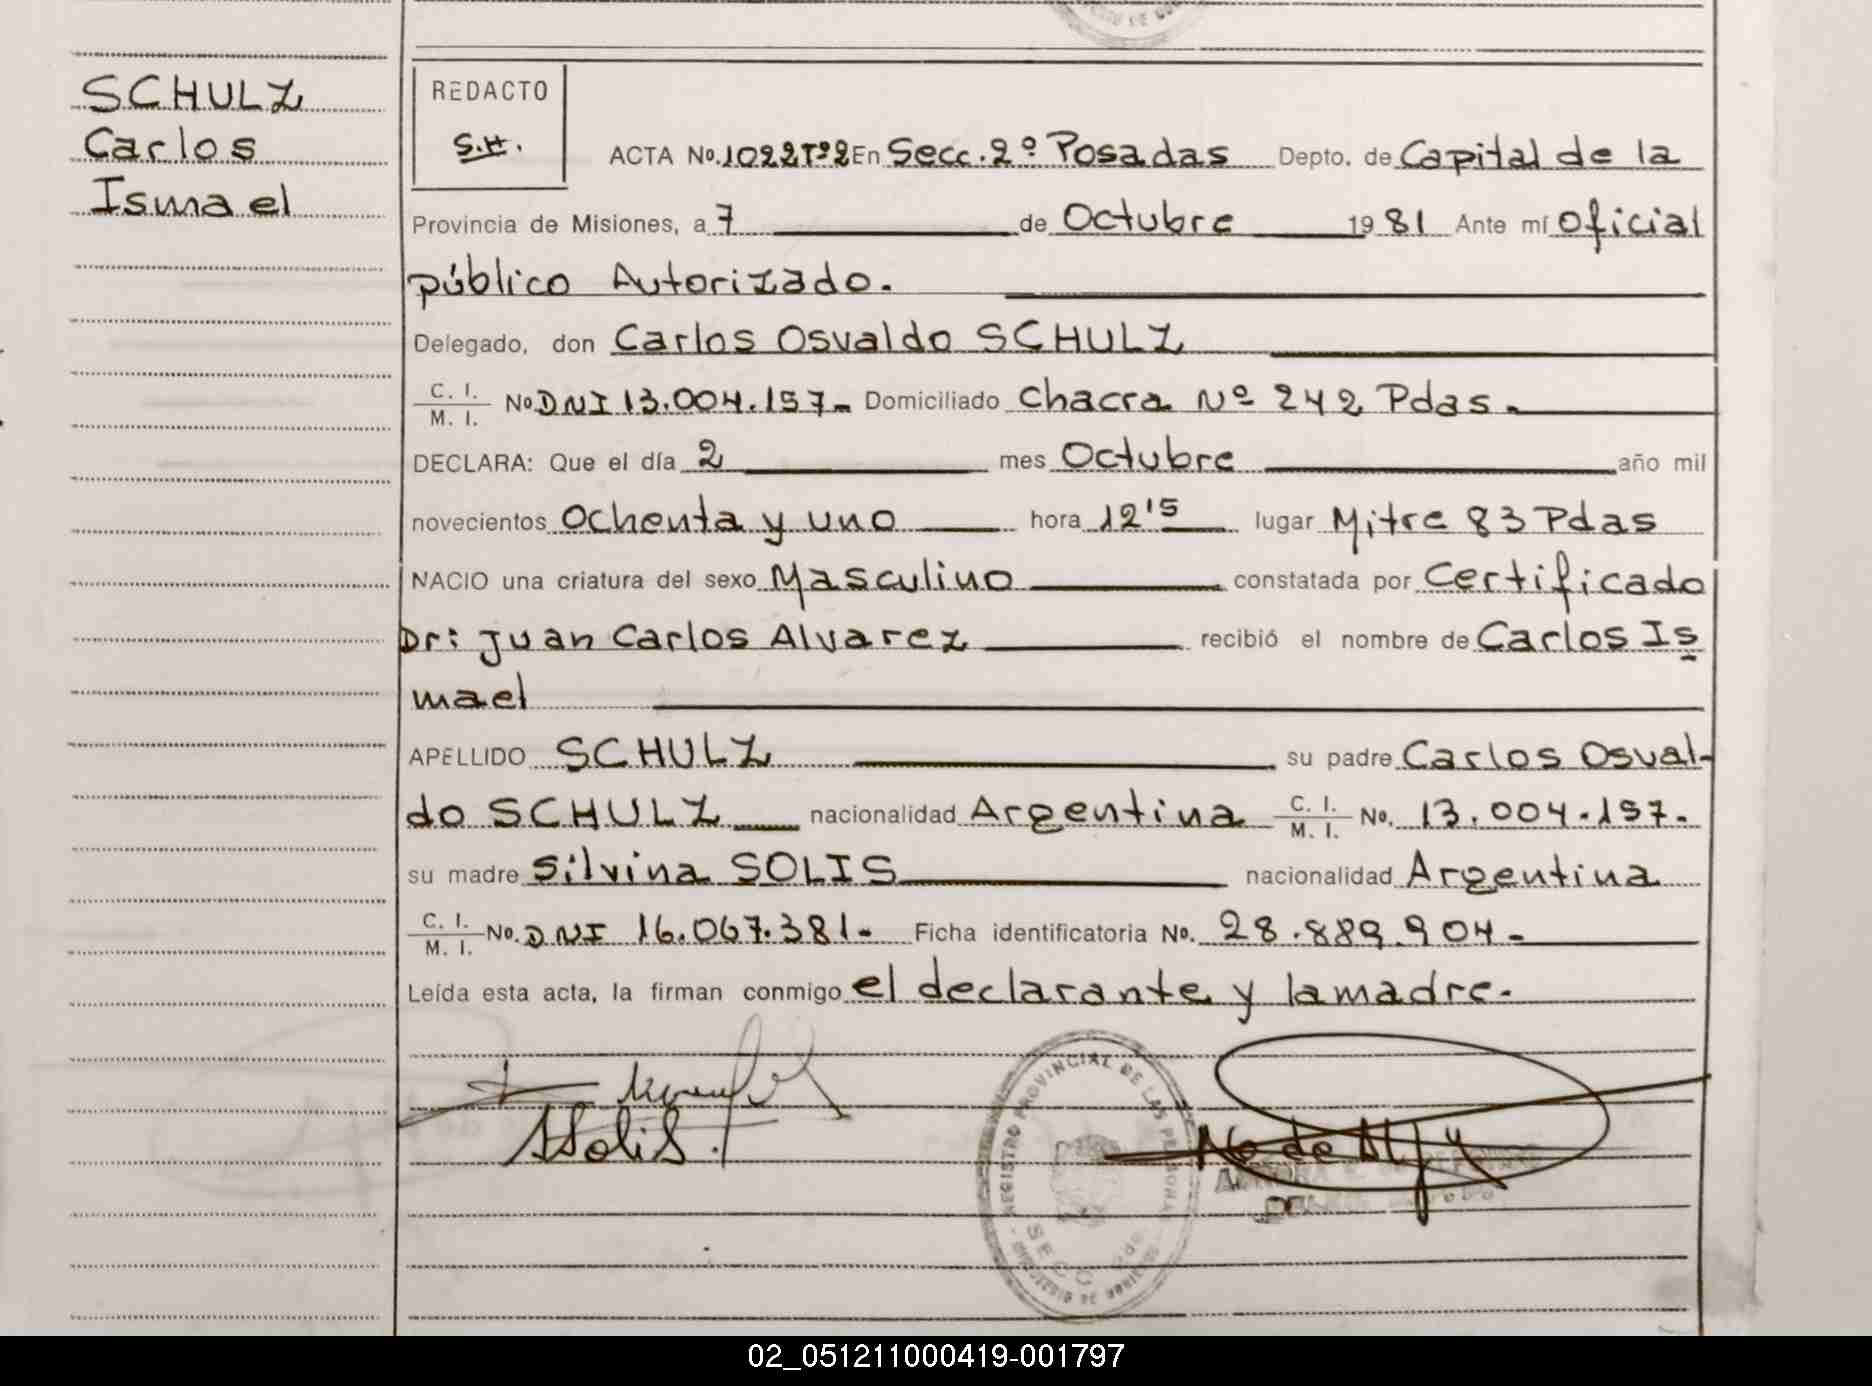 SCHULZ
Carlos
Ismael
REDACTO
S.H.
ACTA No. 1022 Tº2 En Secc. 2º Posadas Depto. de Capital de la
Provincia de Misiones, a 7 de Octubre 1981 Ante mí oficial
público Autorizado.
Delegado, don Carlos Osvaldo SCHULZ
C. I. / M. I. No DNI 13.004.157- Domiciliado Chacra Nº 242 Pdas.
DECLARA: Que el día 2 mes Octubre año mil
novecientos Ochenta y uno hora 12'5 lugar Mitre 83 Pdas
NACIO una criatura del sexo Masculino constatada por Certificado
Dr: Juan Carlos Alvarez recibió el nombre de Carlos Is
mael
APELLIDO SCHULZ su padre Carlos Osval-
do SCHULZ nacionalidad Argentina C. I. / M. I. No. 13.004.157.
su madre Silvina SOLIS nacionalidad Argentina
C. I. / M. I. No. DNI 16.067.381- Ficha identificatoria No. 28.889.904-
Leída esta acta, la firman conmigo el declarante y la madre.
SOLIS.
REGISTRO PROVINCIAL DE LAS PERSONAS
SECC
02_051211000419-001797